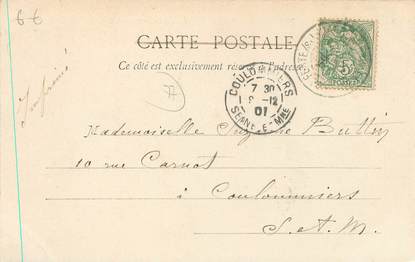 6€
CARTE POSTALE
Ce côté est exclusivement réservé à l'adresse
Imprimé
COULOMMIERS
7 30
8 -12
01
SEINE-E-MNE
5
Mademoiselle Suzanne
10 rue Carnot
à Coulommiers
S. et M.